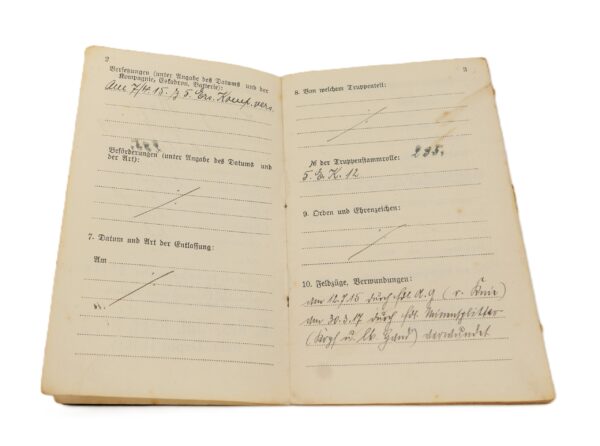 2
Versetzungen (unter Angabe des Datums und der
Kompagnie, Eskadron, Batterie):
Am 7/10. 15. z. 5. Ers. Komp. vers.
Beförderungen (unter Angabe des Datums und
der Art):
7. Datum und Art der Entlassung:
Am
3
8. Von welchem Truppenteil:
№ der Truppenstammrolle: 235.
5. E. K. 12
9. Orden und Ehrenzeichen:
10. Feldzüge, Verwundungen:
am 12.7.16 durch A.G. (r. Knie)
am 30.3.17 durch Minensplitter
(Kopf u. lk. Hand) verwundet